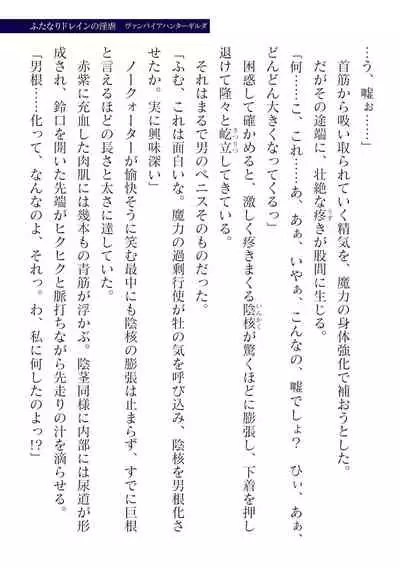 ふたなりドレインの淫虐 ヴァンパイアハンターギルダ
…う、嘘ぉ……」
首筋から吸い取られていく精気を、魔力の身体強化で補おうとした。
だがその途端に、壮絶な疼きが股間に生じる。
「何……こ、これ……あ、あぁ、いやぁ、こんなの、嘘でしょ？　ひぃ、あぁ、
どんどん大きくなってくるっ」
困惑して確かめると、激しく疼きまくる陰核が驚くほどに膨張し、下着を押し
退けて隆々と屹立してきている。
それはまるで男のペニスそのものだった。
「ふむ、これは面白いな。魔力の過剰行使が牡の気を呼び込み、陰核を男根化さ
せたか。実に興味深い」
ノークォーターが愉快そうに笑む最中にも陰核の膨張は止まらず、すでに巨根
と言えるほどの長さと太さに達していた。
赤紫に充血した肉肌には幾本もの青筋が浮かぶ。陰茎同様に内部には尿道が形
成され、鈴口を開いた先端がヒクヒクと脈打ちながら先走りの汁を滴らせる。
「男根……化って、なんなのよ、それっ。わ、私に何したのよっ!?」